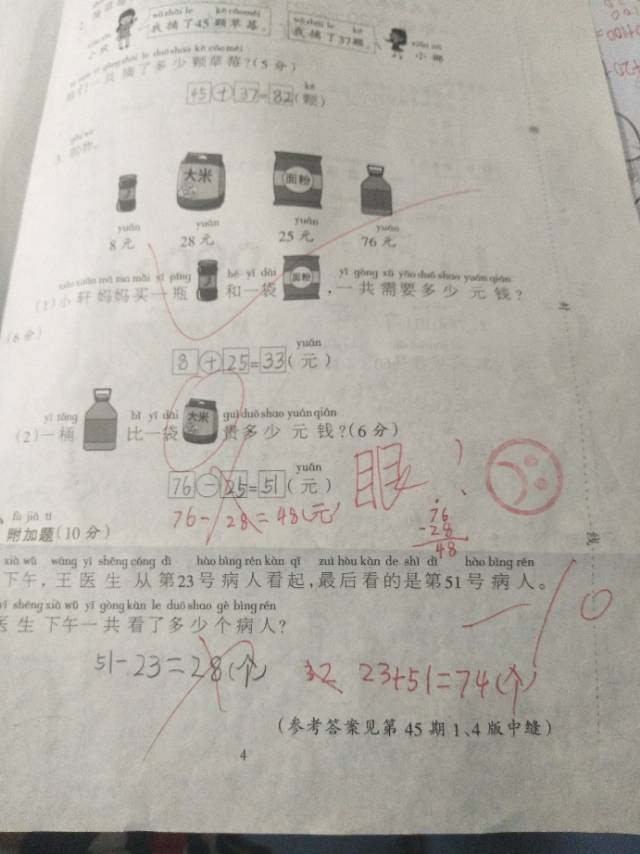 我摘了45颗草莓。
我摘了37颗
一共摘了多少颗草莓?(5分)
kē
45+37=82(颗)
3. 购物。
大米
面粉
yuán yuán yuán yuán
8元 28元 25元 76元
(1)小轩妈妈买一瓶 和一袋 面粉 ,一共需要多少元钱?
(6分)
yuán
8+25=33(元)
yì tǒng bǐ yí dài guì duō shao yuán qián
(2)一桶 比一袋 大米 贵多少元钱?(6分)
yuán
76-25=51(元)
眼?
76-28=48(元)
76
-28
48
fù jiā tí
附加题(10分)
xià wǔ wáng yī shēng cóng dì hào bìng rén kàn qǐ zuì hòu kàn de shì dì hào bìng rén
下午,王医生从第23号病人看起,最后看的是第51号病人。
yī shēng xià wǔ yí gòng kàn le duō shao gè bìng rén
医生下午一共看了多少个病人?
-10
51-23=28(个)
23+51=74(个)
(参考答案见第45期1、4版中缝)
4
线